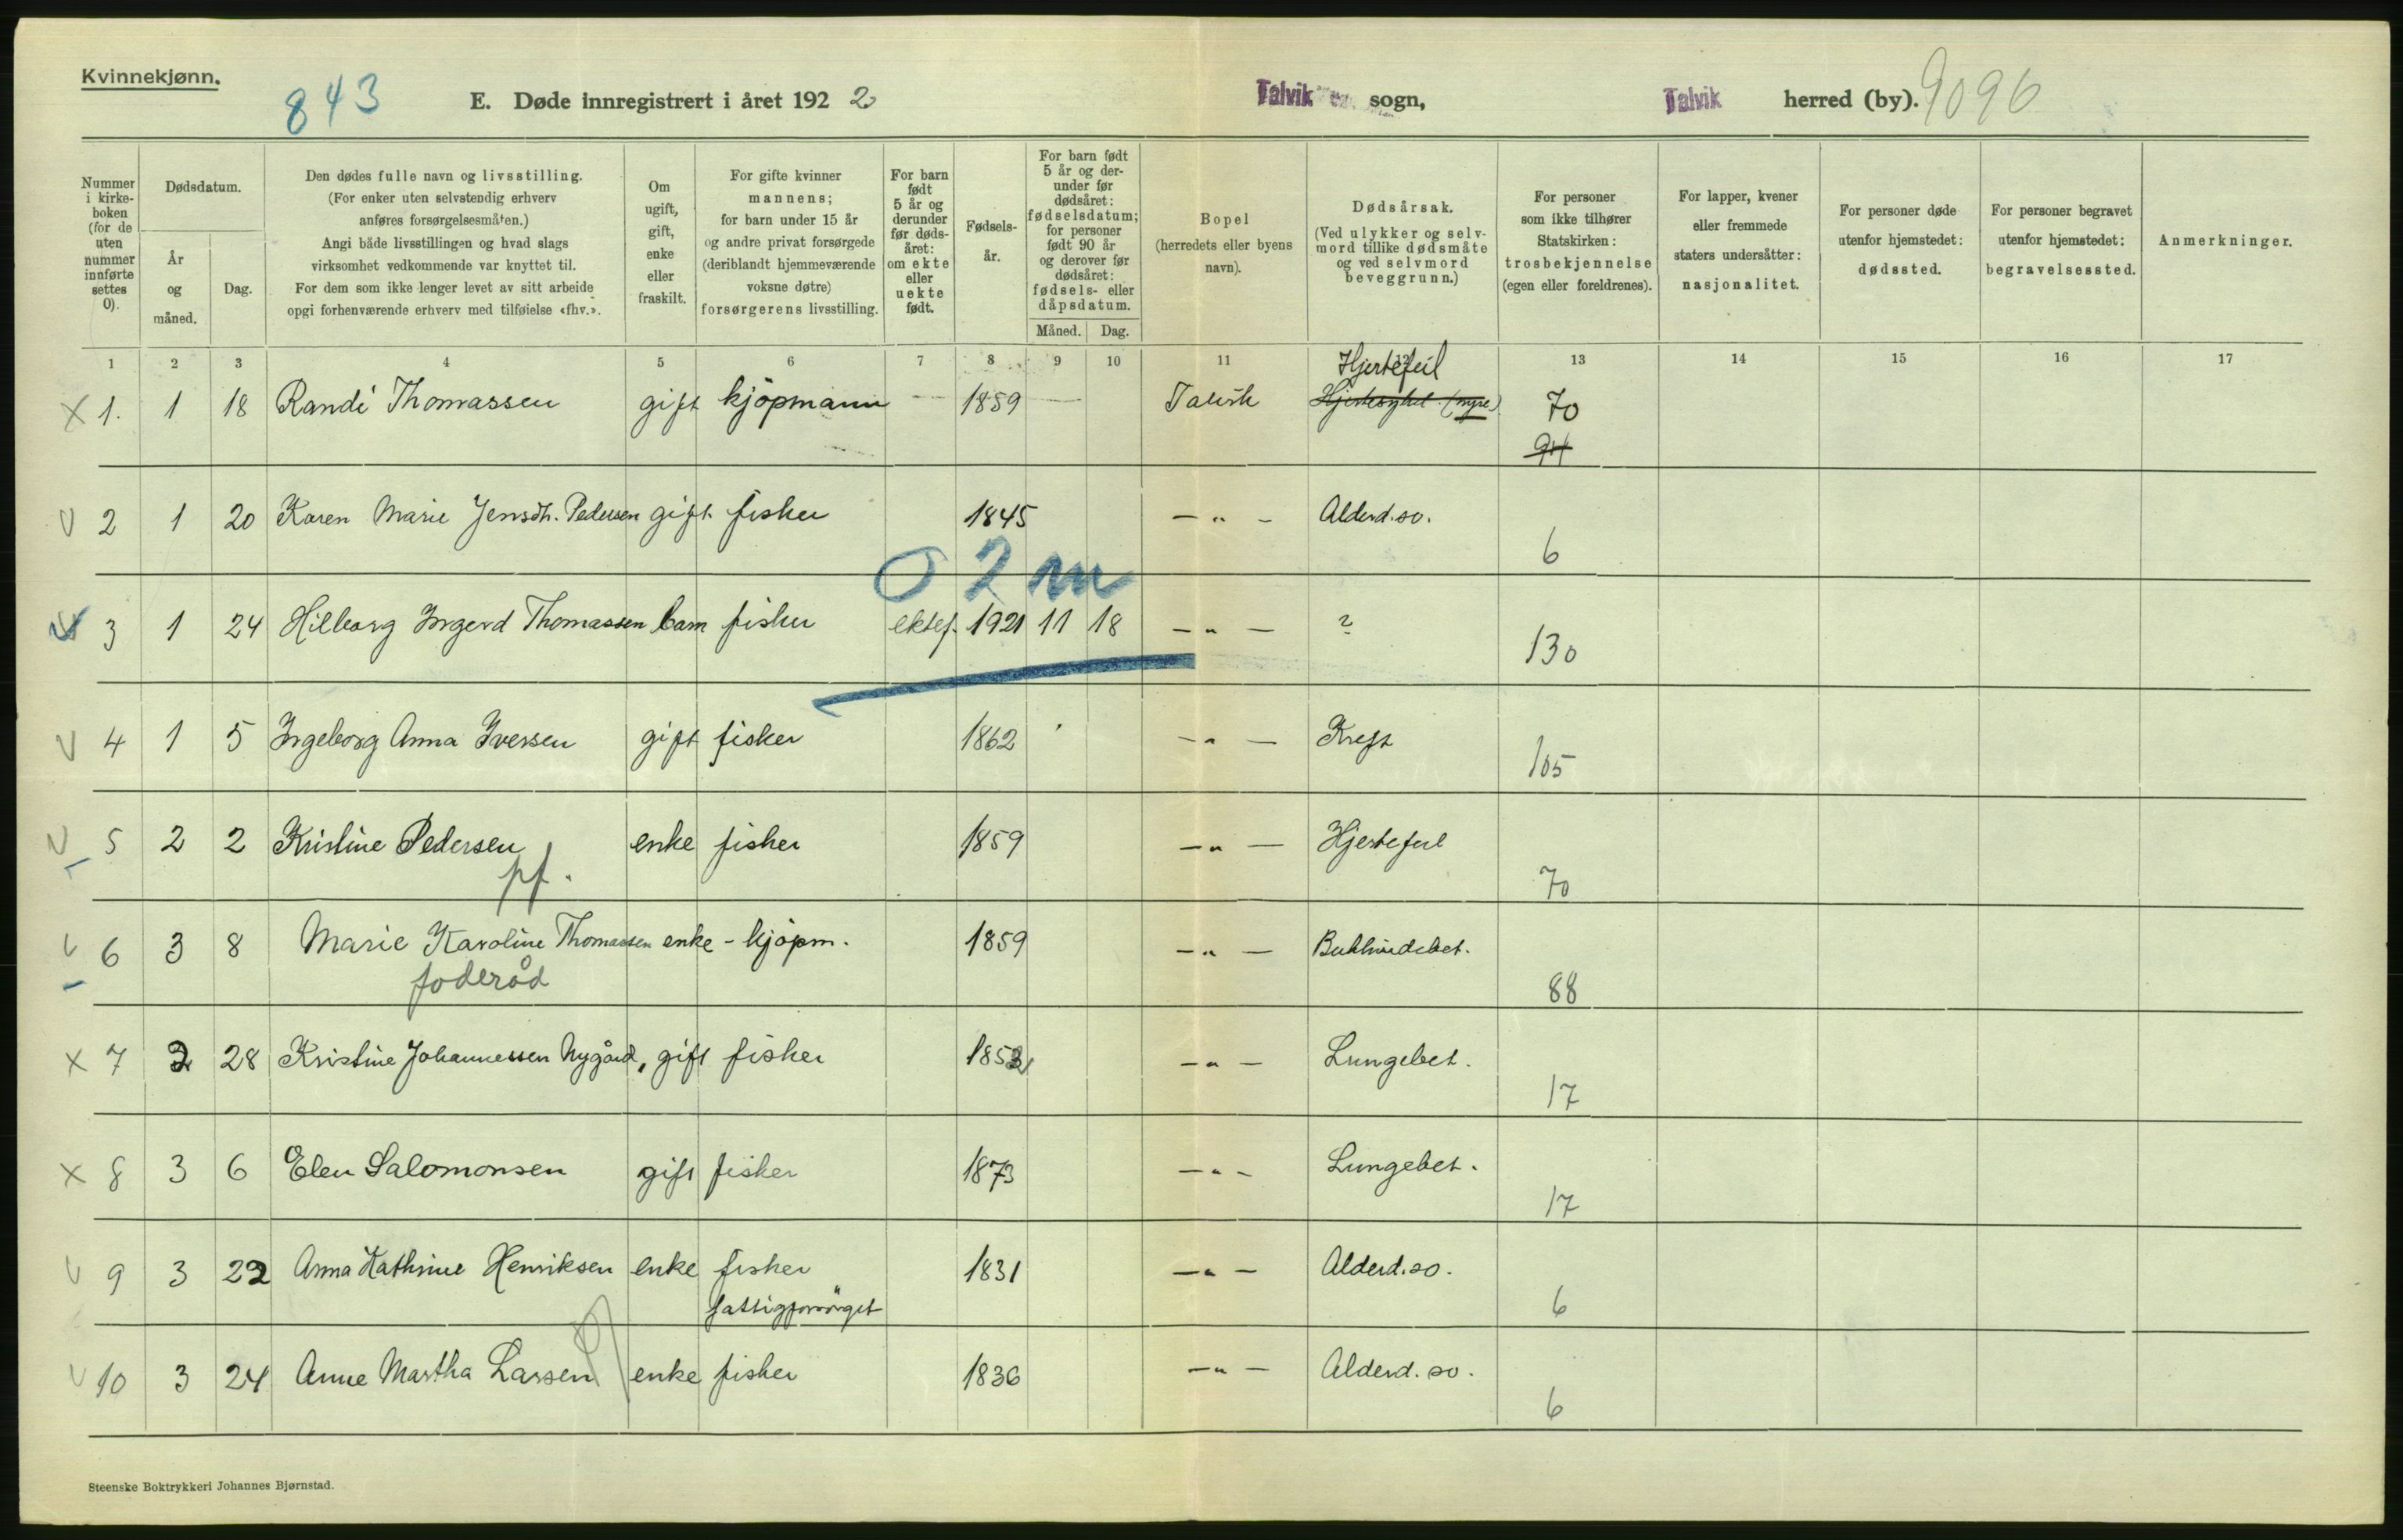 Kvinnekjønn.
843
E. Døde innregistrert i året 1922
Talvik sogn,
Talvik herred (by).
9096
Nummer i kirke-boken (for de uten nummer innførte settes 0).
Dødsdatum.
År og måned.
Dag.
Den dødes fulle navn og livsstilling.
(For enker uten selvstendig erhverv
anføres forsørgelsesmåten.)
Angi både livsstillingen og hvad slags
virksomhet vedkommende var knyttet til.
For dem som ikke lenger levet av sitt arbeide
opgi forhenværende erhverv med tilføielse «fhv.».
Om ugift, gift, enke eller fraskilt.
For gifte kvinner
mannens;
for barn under 15 år
og andre privat forsørgede
(deriblandt hjemmeværende
voksne døtre)
forsørgerens livsstilling.
For barn født 5 år og derunder før døds-året: om ekte eller uekte født.
Fødsels-år.
For barn født 5 år og der-under før dødsåret: fødselsdatum; for personer født 90 år og derover før dødsåret: fødsels- eller dåpsdatum.
Måned.
Dag.
Bopel
(herredets eller byens
navn).
Dødsårsak.
(Ved ulykker og selv-
mord tillike dødsmåte
og ved selvmord
beveggrunn.)
For personer
som ikke tilhører
Statskirken:
trosbekjennelse
(egen eller foreldrenes).
For lapper, kvener
eller fremmede
staters undersåtter:
nasjonalitet.
For personer døde
utenfor hjemstedet:
dødssted.
For personer begravet
utenfor hjemstedet:
begravelsessted.
Anmerkninger.
1 2 3 4 5 6 7 8 9 10 11 12 13 14 15 16 17
Hjertefeil
X 1. 1 18 Randi Thomassen gift kjöpmann — 1859 — Talvik Hjertesykd. (myre) 70
94
V 2 1 20 Karen Marie Jensdh. Pedersen gift fisker 1845 — " — Alderd.so.
6
0 2 m
3 1 24 Hilborg Ingerd Thomassen barn fisker ektef. 1921 11 18 — " — ?
130
V 4 1 5 Ingeborg Anna Iversen gift fisker 1862 — " — Kreft
105
V 5 2 2 Kristine Pedersen enke fisker 1859 — " — Hjertefeil
pf.
70
V 6 3 8 Marie Karoline Thomassen enke - kjöpm. 1859 — " — Bukhindebet.
foderåd
88
X 7 2 28 Kristine Johannessen Nygård, gift fisker 1852 — " — Lungebet.
17
X 8 3 6 Elen Salomonsen gift fisker 1873 — " — Lungebet.
17
V 9 3 22 Anna Kathrine Henriksen enke fisker 1831 — " — Alderd.so.
fattigforsörget
6
V 10 3 24 Anne Martha Larsen enke fisker 1836 — " — Alderd. so.
pf
6
Steenske Boktrykkeri Johannes Bjørnstad.